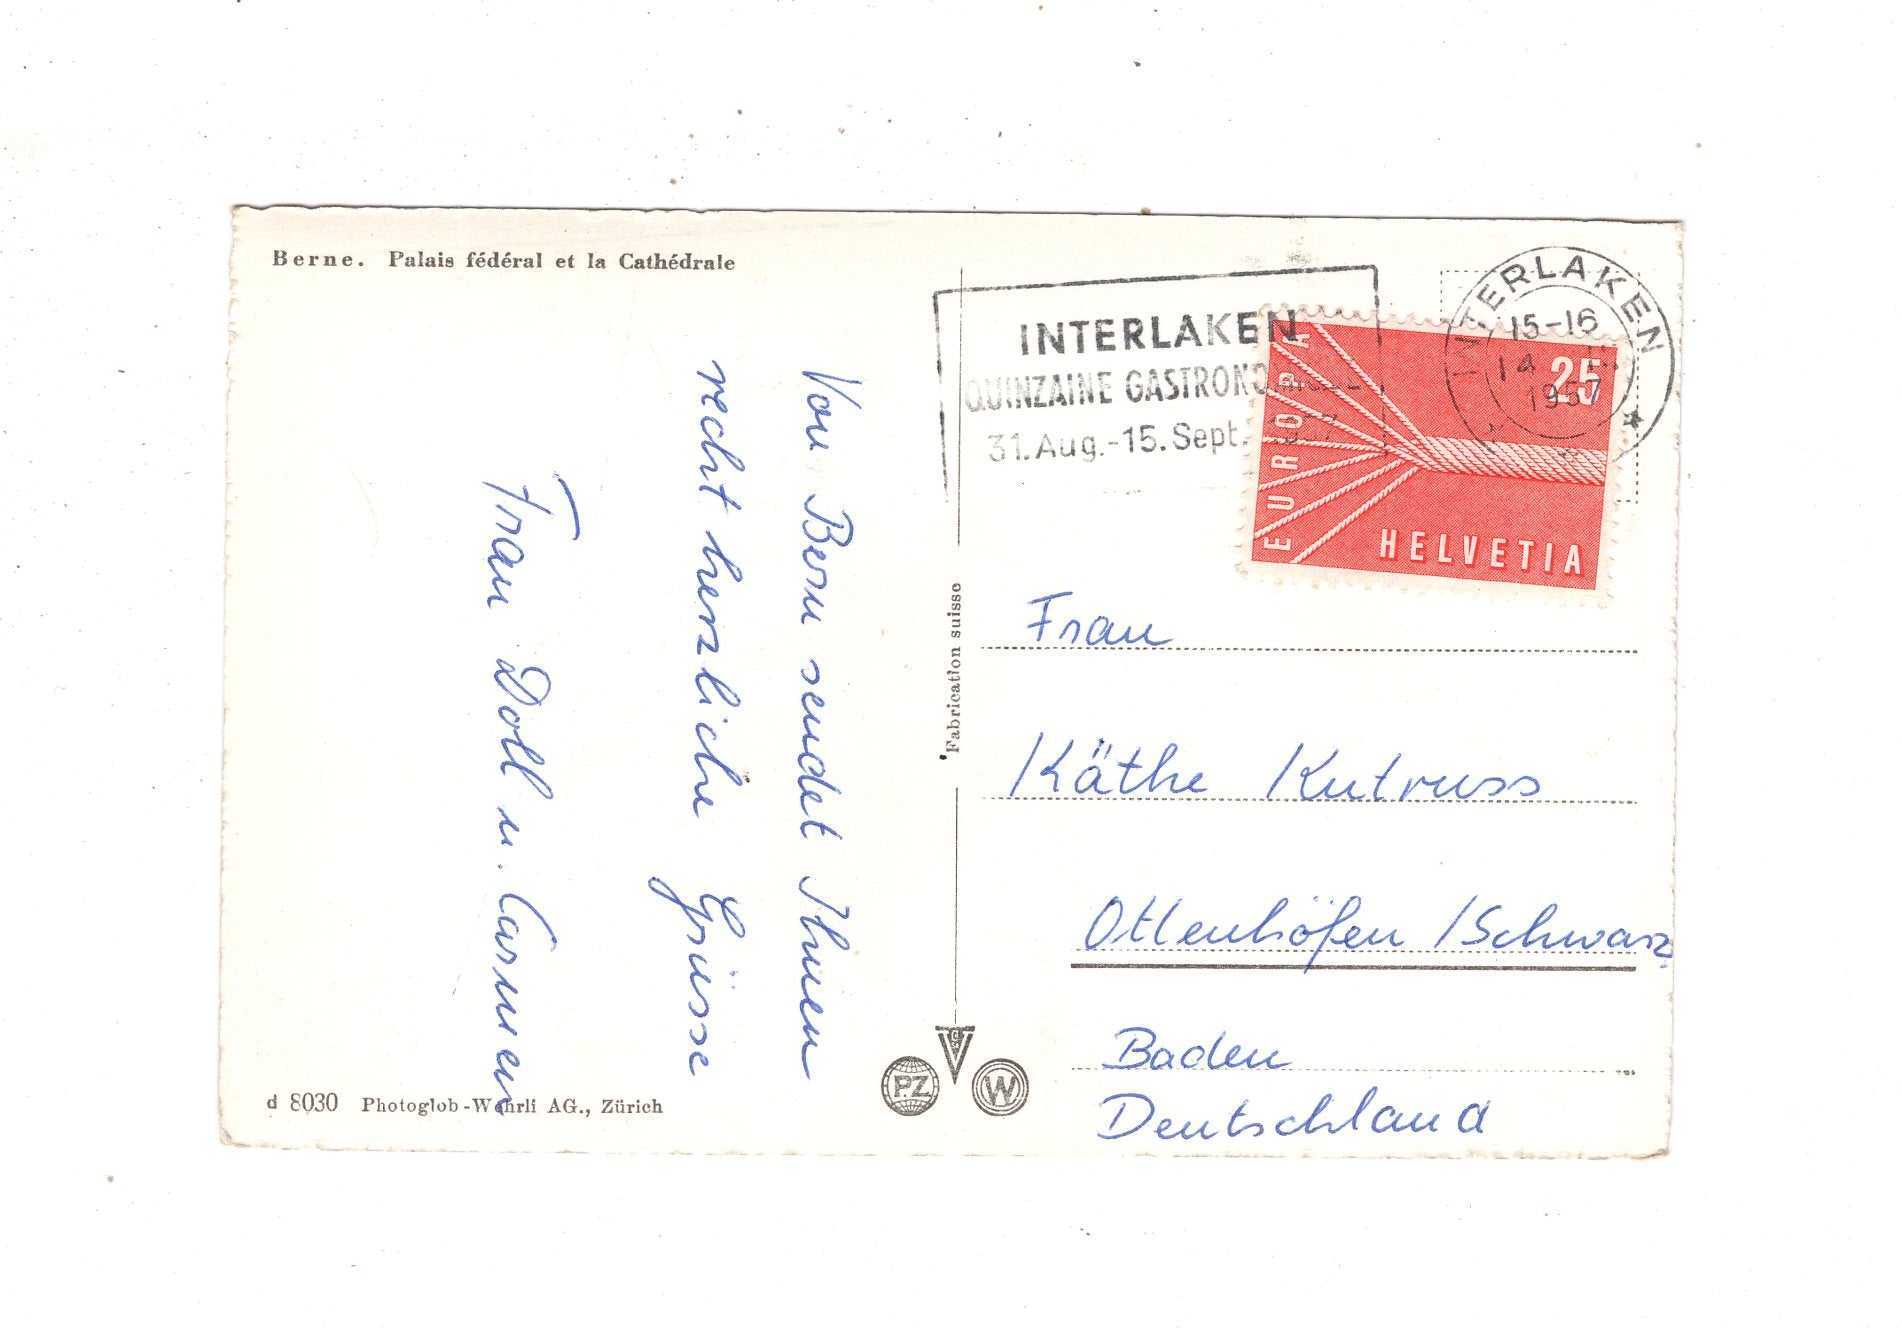 Berne. Palais fédéral et la Cathédrale
Von Bern sendet Ihnen
recht herzliche Grüsse
Frau Doll u. Carmen
d 8030 Photoglob-Wehrli AG., Zürich
Fabrication suisse
P.Z
W
INTERLAKEN
QUINZAINE GASTRONOMIQUE
31. Aug.-15. Sept. 1957
INTERLAKEN
15-16
14
1957
25
EUROPA
HELVETIA
Frau
Käthe Kutruss
Ottenhöfen /Schwarz.
Baden
Deutschland